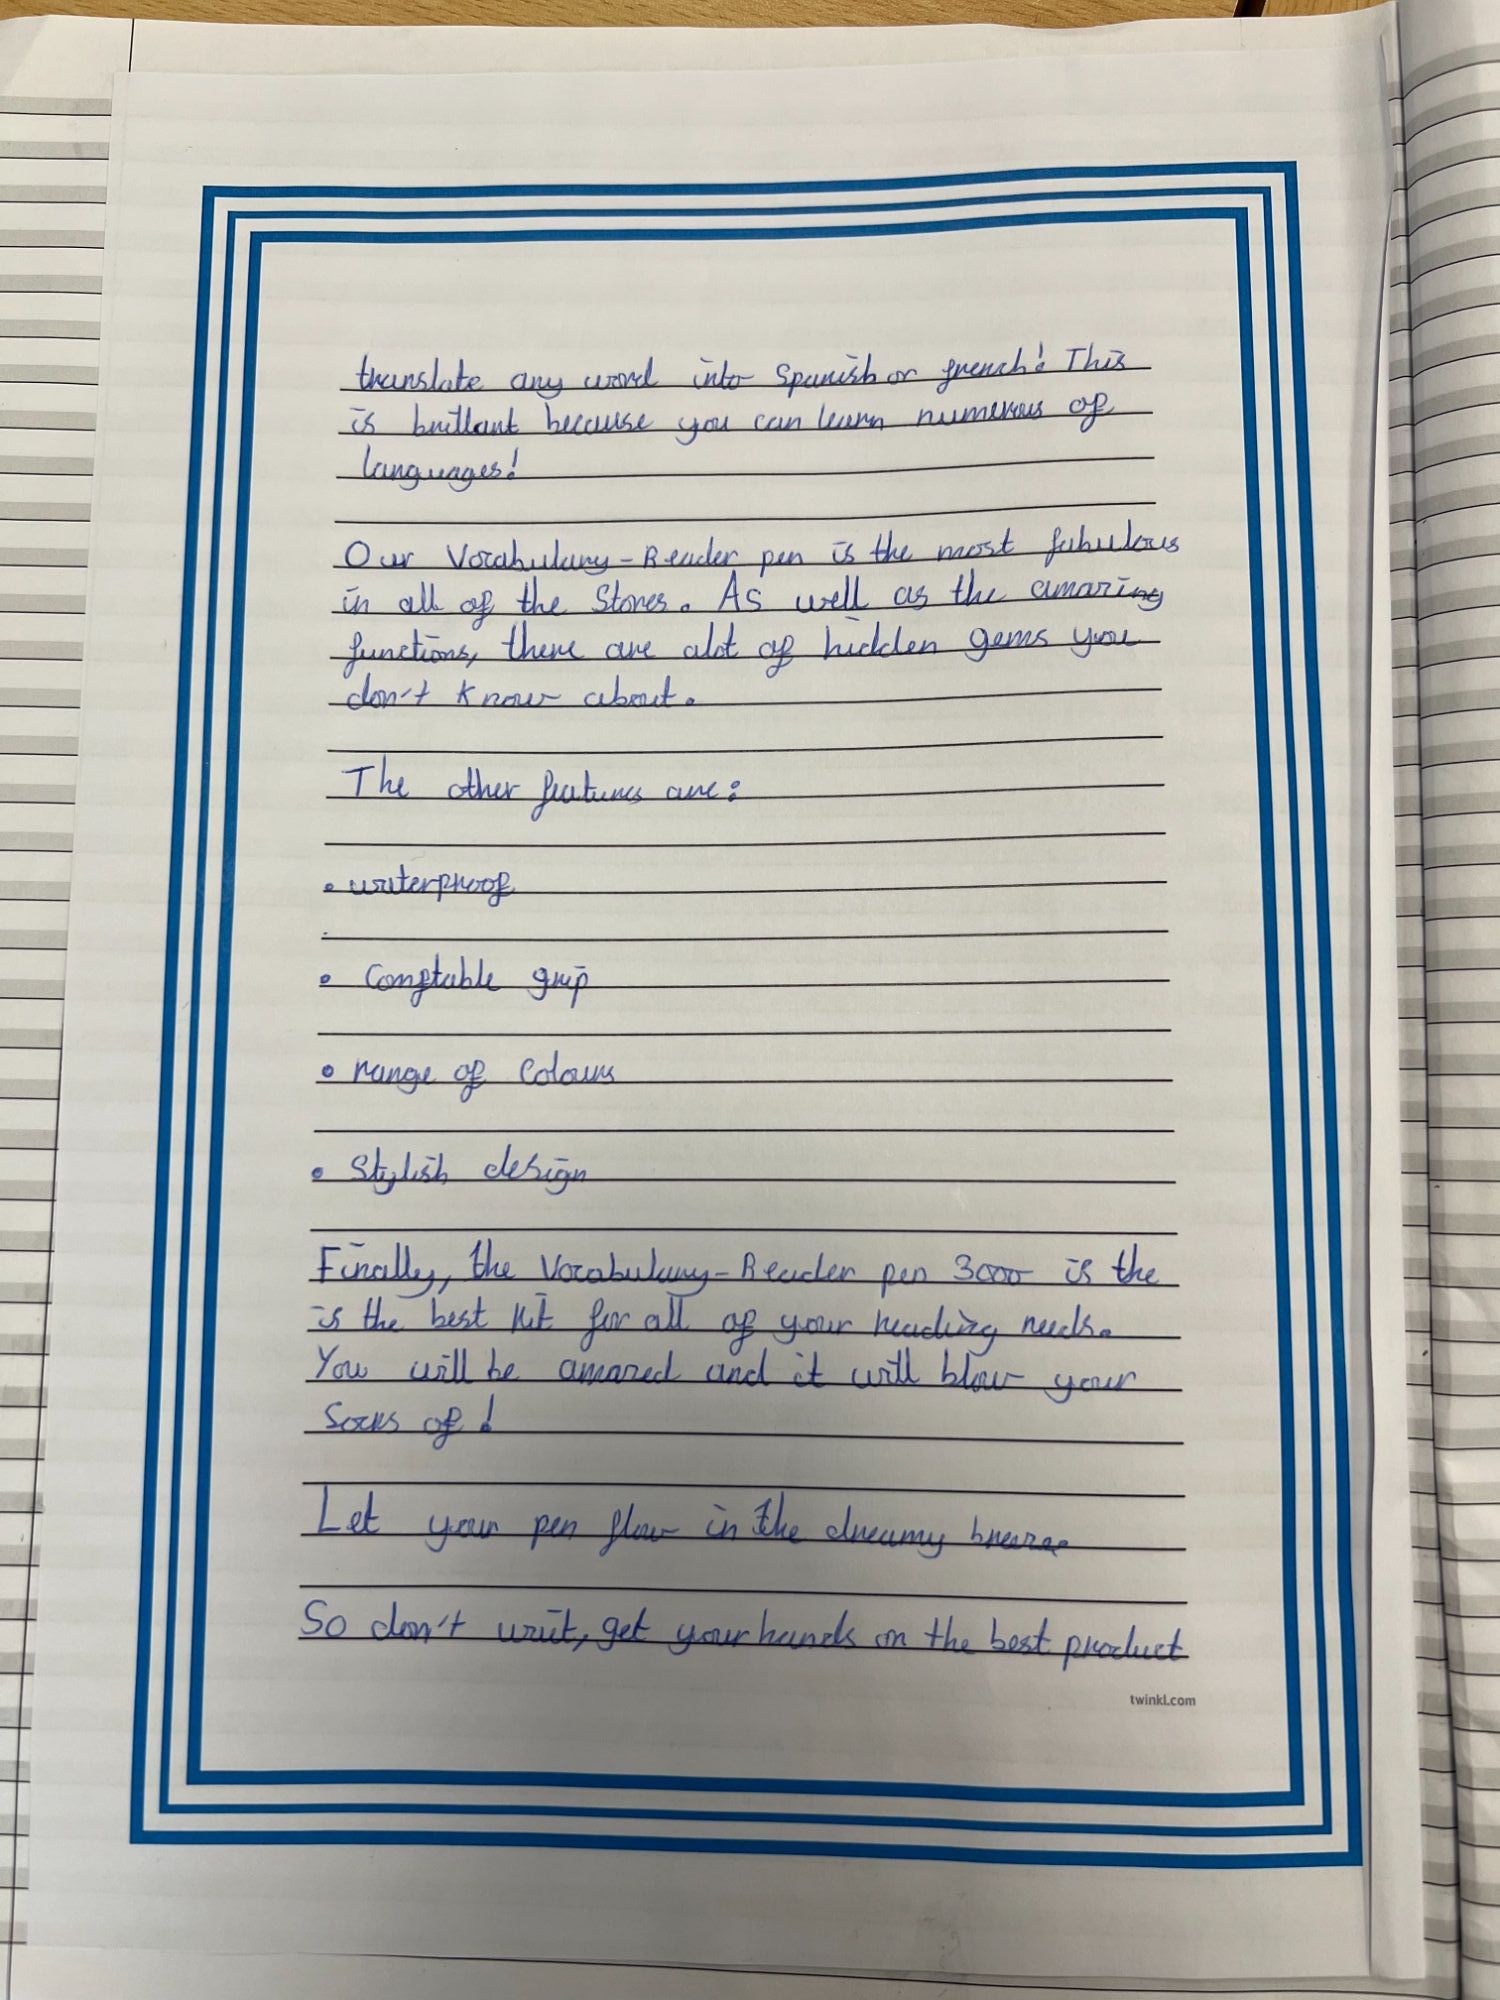 translate any word into Spanish or french! This
is brillant because you can learn numerous of
languages!
Our Vocabulary-Reader pen is the most fabulous
in all of the Stores. As well as the amazing
functions, there are alot of hidden gems you
don't know about.
The other features are:
• waterproof
• Comftable grip
• range of Colours
• Stylish design
Finally, the Vocabulary-Reader pen 3000 is the
is the best kit for all of your reading needs.
You will be amazed and it will blow your
Socks of!
Let your pen flow in the dreamy breeze
So don't wait, get your hands on the best product
twinkl.com